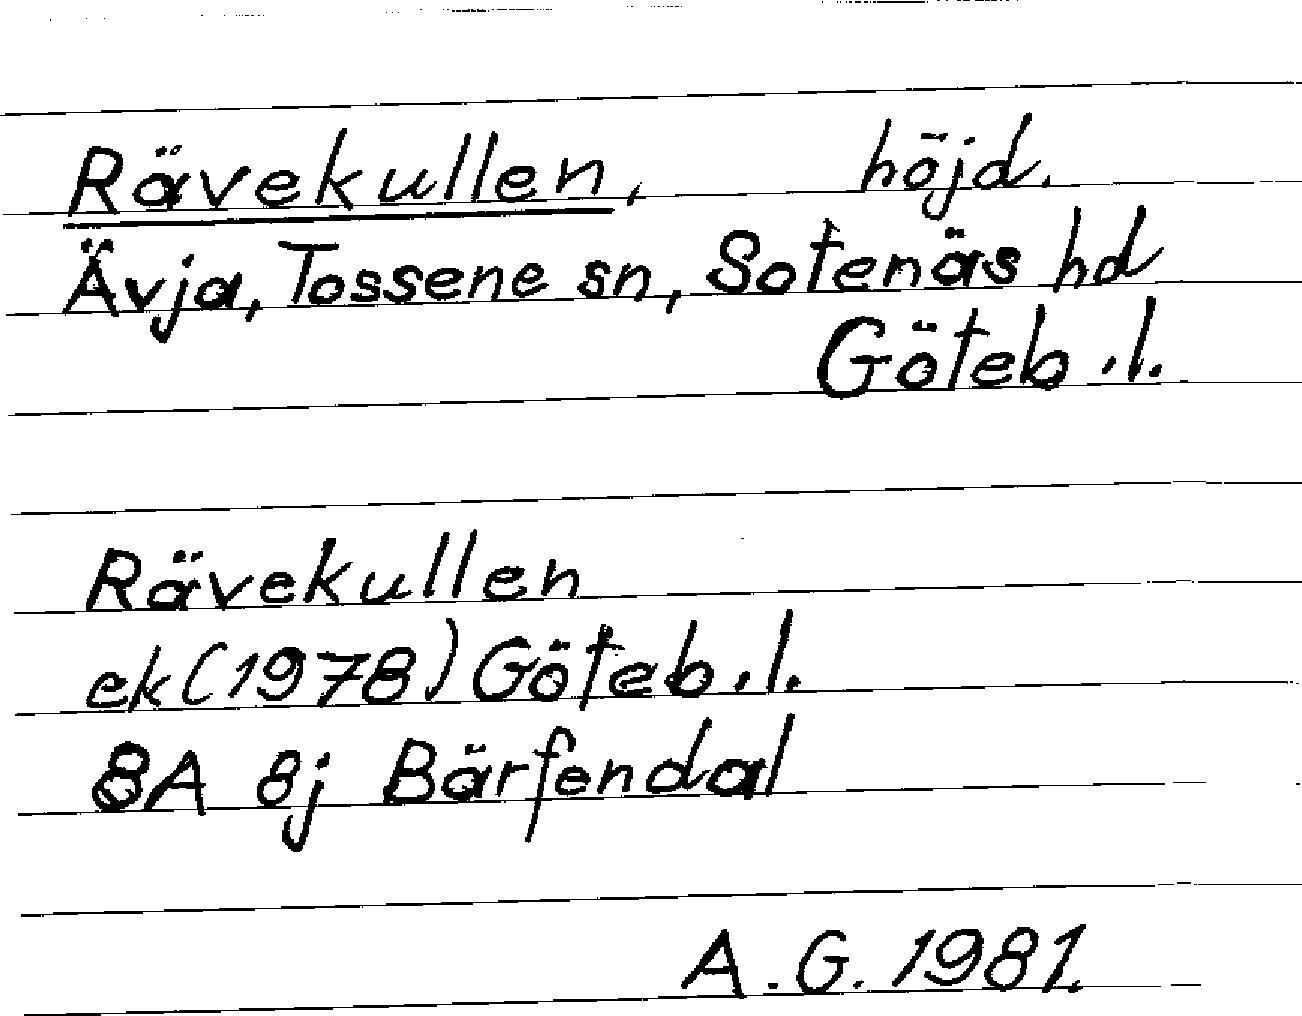 Rävekullen, höjd.
Ävja, Tossene sn, Sotenäs hd
Göteb.l.
Rävekullen
ek (1978) Göteb.l.
8A 8j Bärfendal
A.G. 1981.